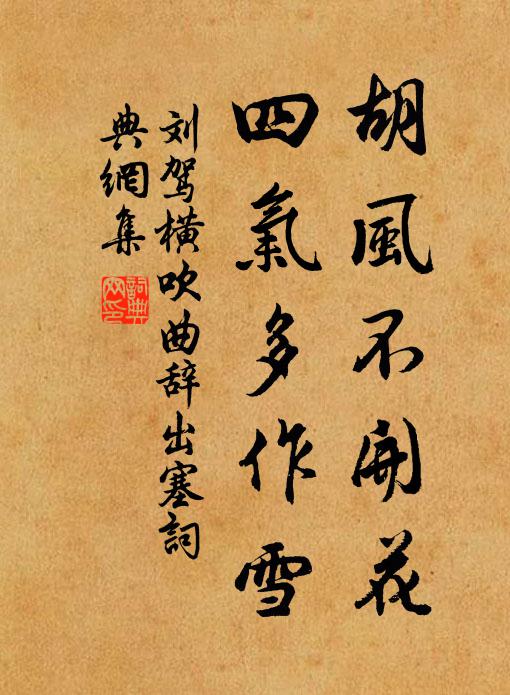 胡風不開花
四氣多作雪
刘驾横吹曲辞出塞詞
典網集
詞典
网印